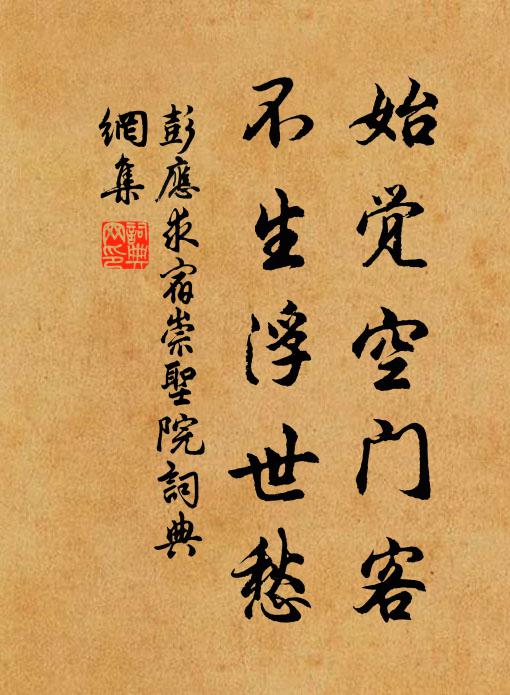 始觉空门客
不生浮世愁
彭應求宿崇聖院詞典
網集
詞典
网印